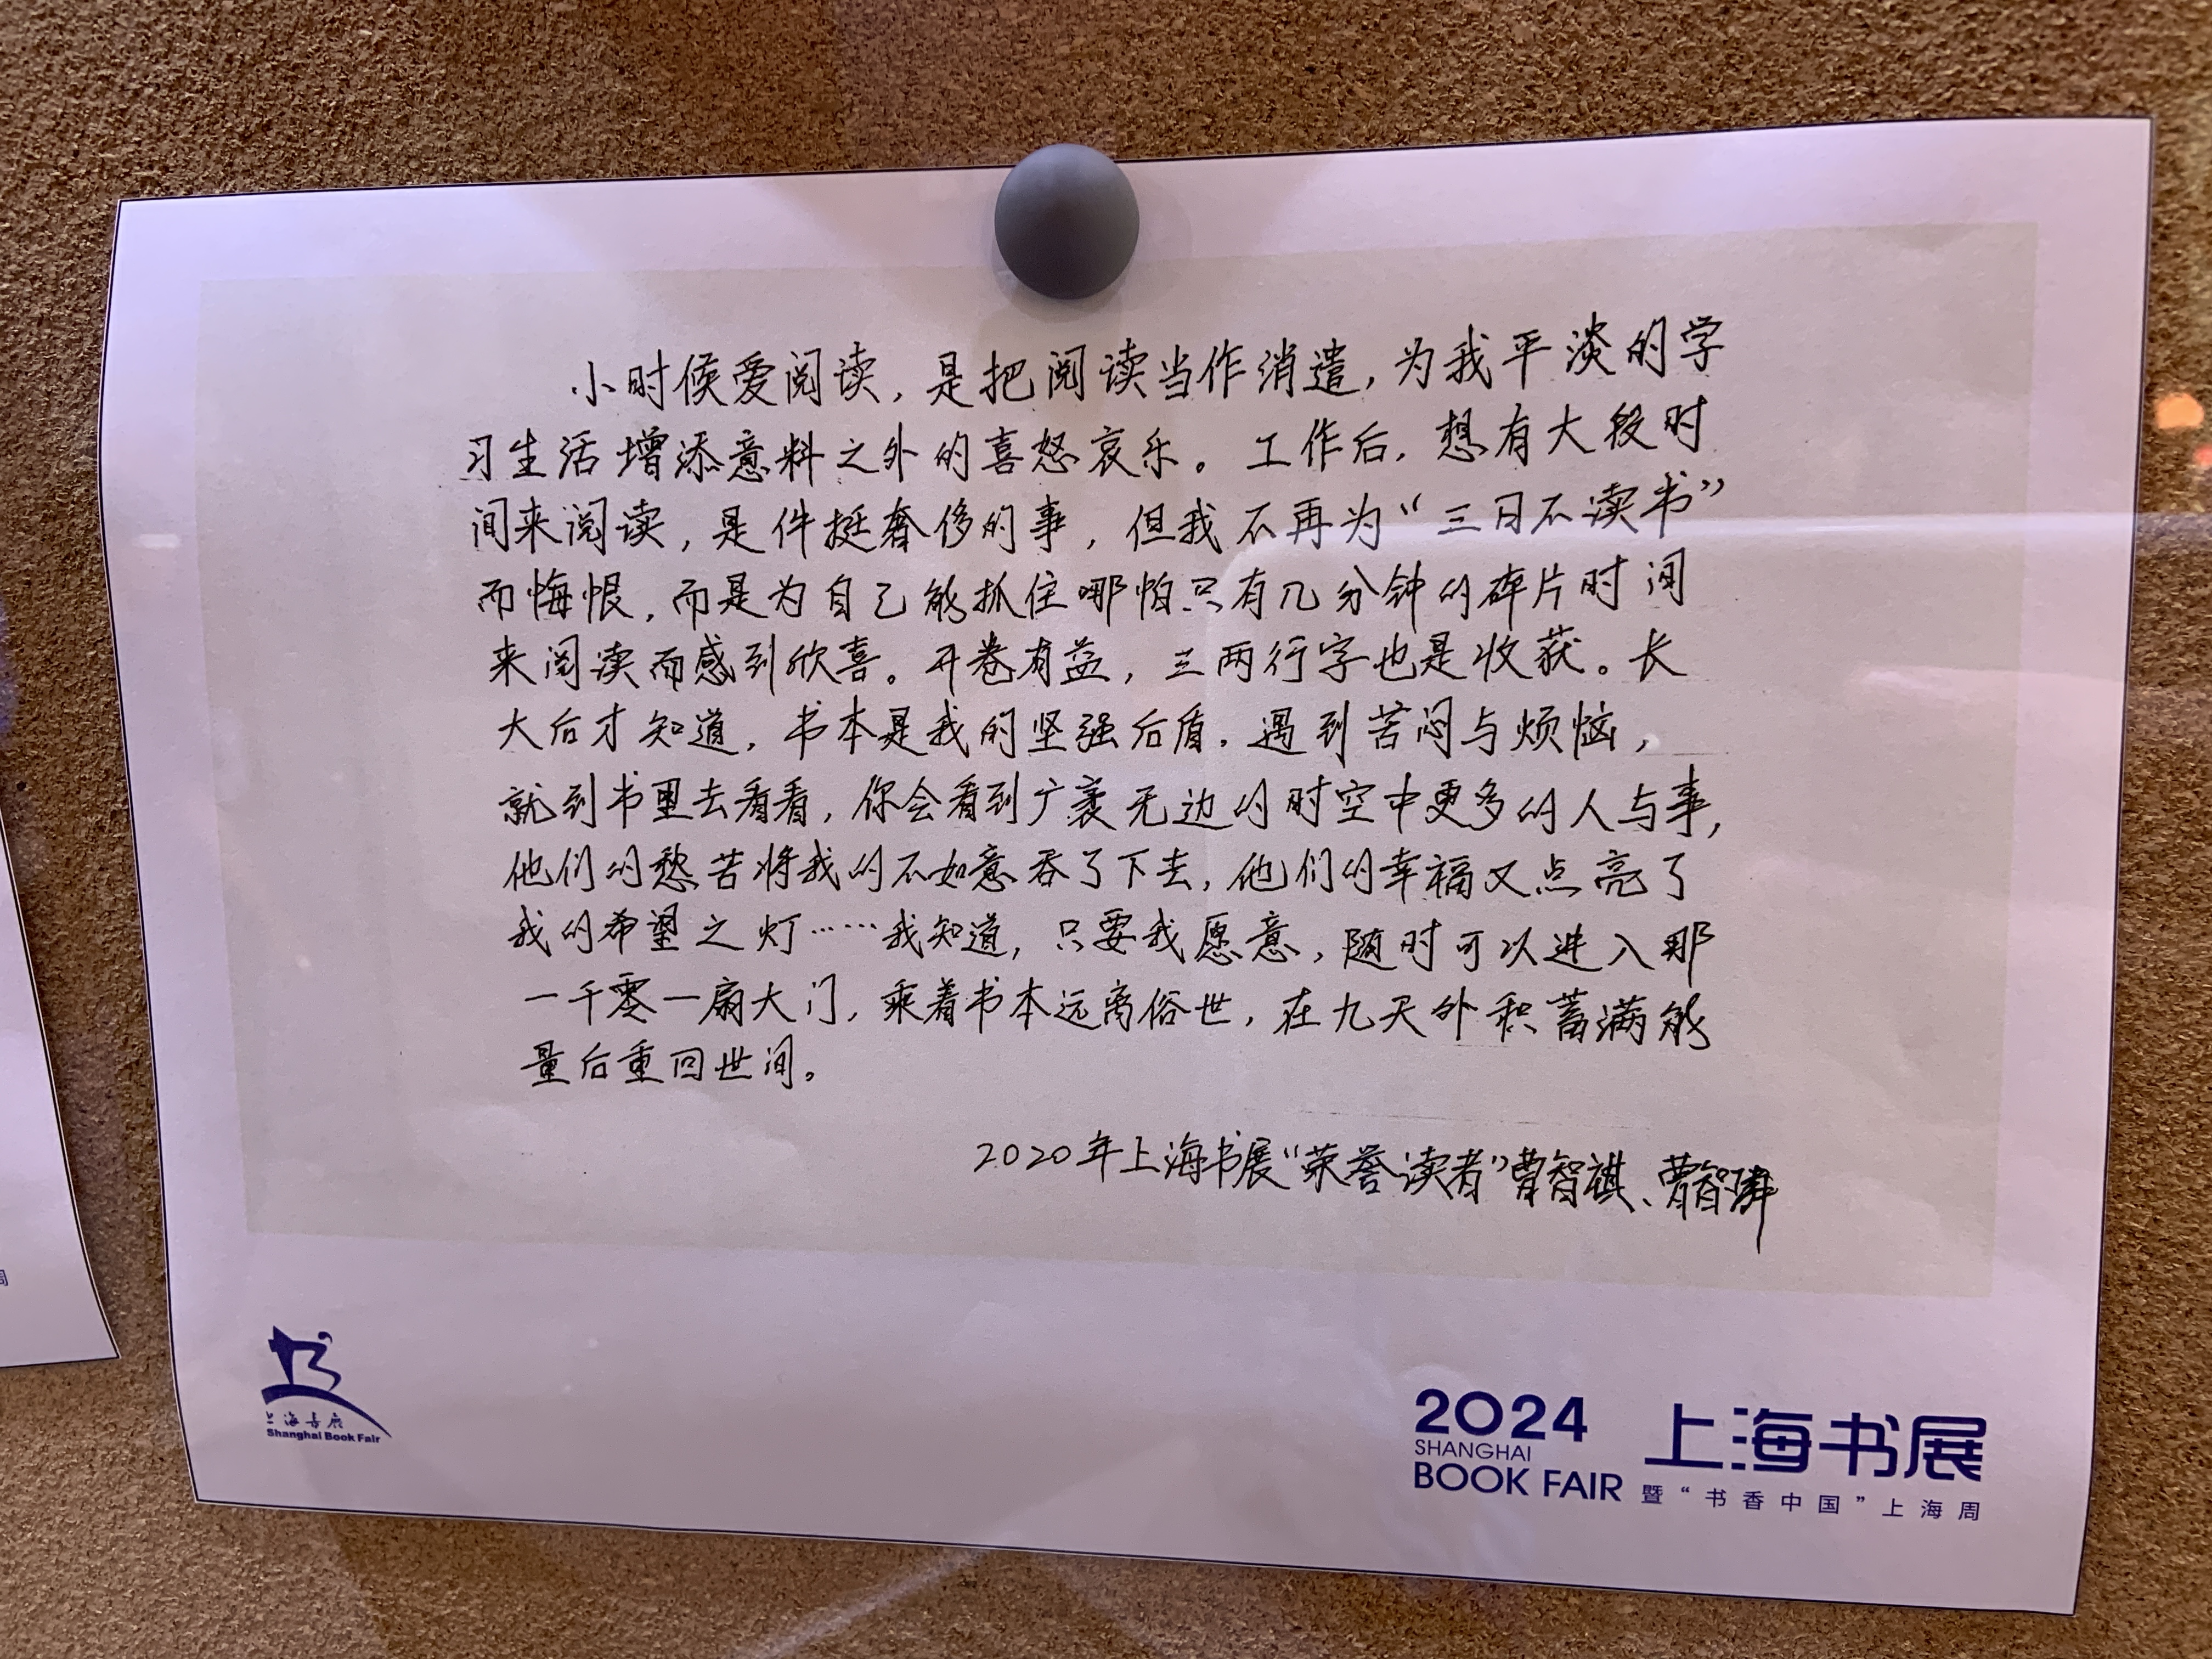 小时候爱阅读，是把阅读当作消遣，为我平淡的学
习生活增添意料之外的喜怒哀乐。工作后，想有大段时
间来阅读，是件挺奢侈的事，但我不再为“三日不读书”
而悔恨，而是为自己能抓住哪怕只有几分钟的碎片时间
来阅读而感到欣喜。开卷有益，三两行字也是收获。长
大后才知道，书本是我的坚强后盾，遇到苦闷与烦恼，
就到书里去看看，你会看到广袤无边的时空中更多的人与事，
他们的愁苦将我的不如意吞了下去，他们的幸福又点亮了
我的希望之灯……我知道，只要我愿意，随时可以进入那
一千零一扇大门，乘着书本远离俗世，在九天外积蓄满能
量后重回世间。
2020年上海书展“荣誉读者”曹智祺、曹智
上海书展
Shanghai Book Fair
2024
SHANGHAI
BOOK FAIR
上海书展
暨“书香中国”上海周
周